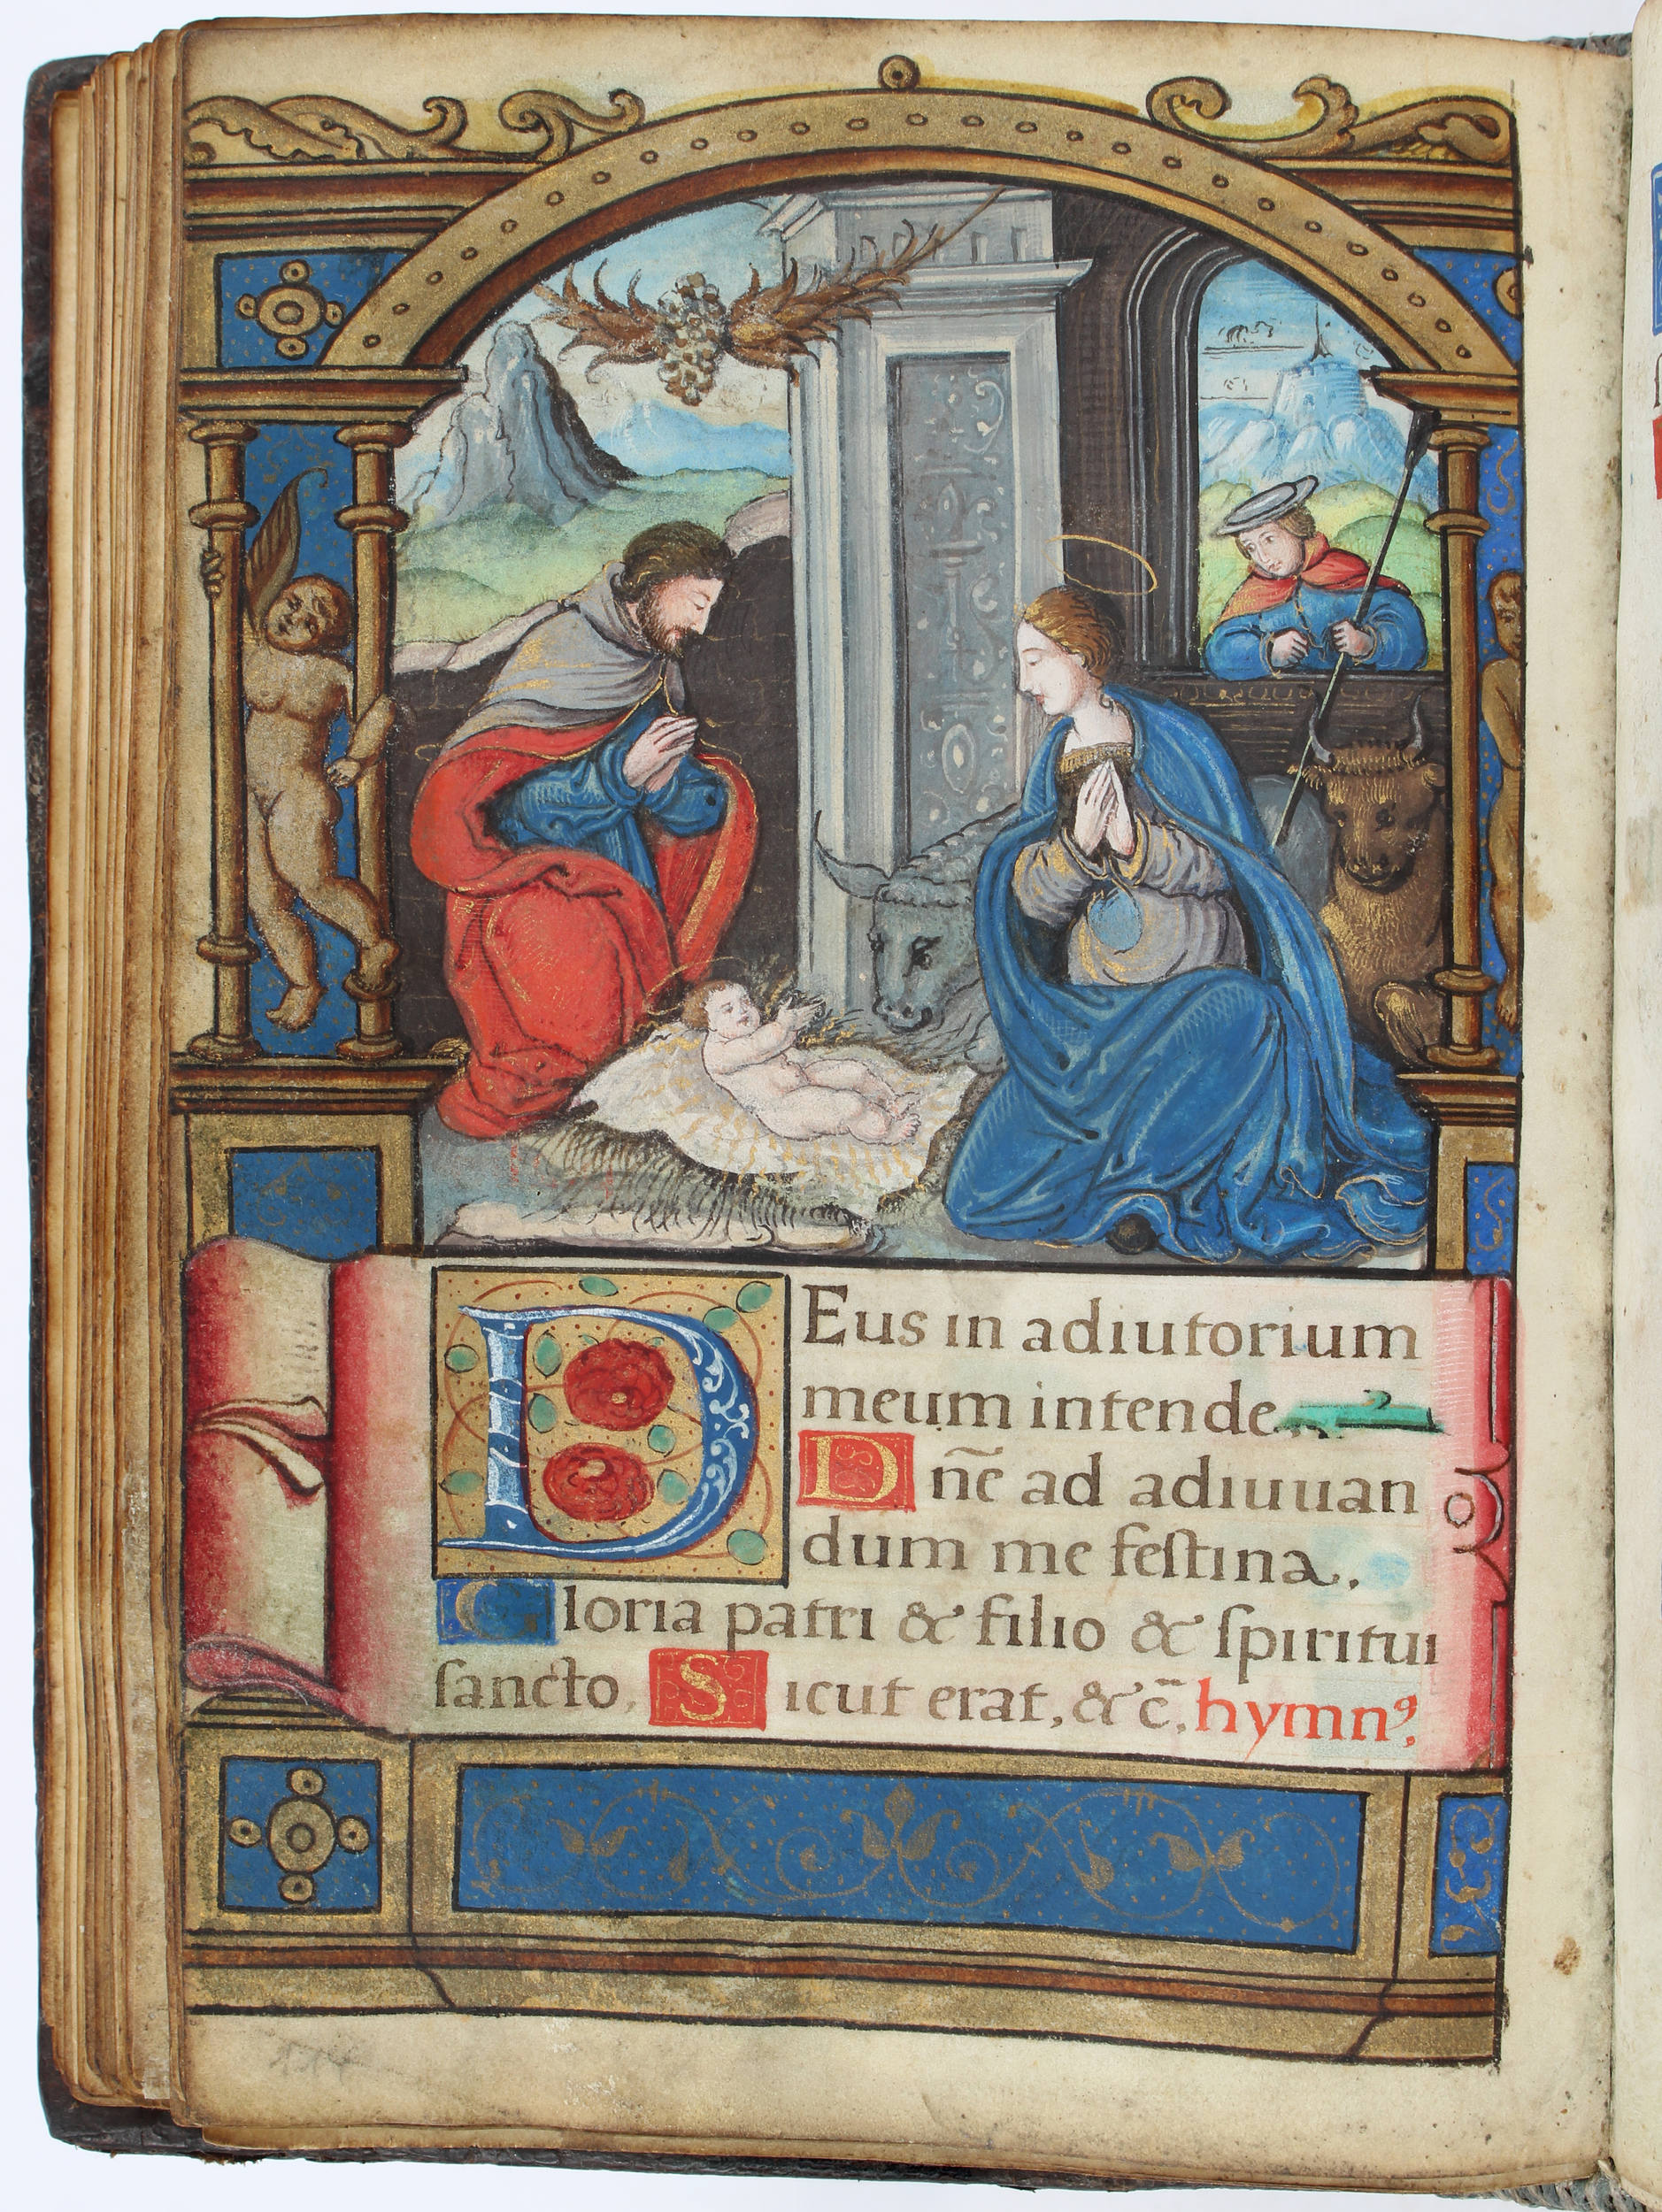 DEus in adiutorium
meum intende
Dn̄e ad adiuuan
dum me feſtina.
Gloria patri & filio & ſpiritui
ſancto. Sicut erat, & c̄. hymnꝰ.